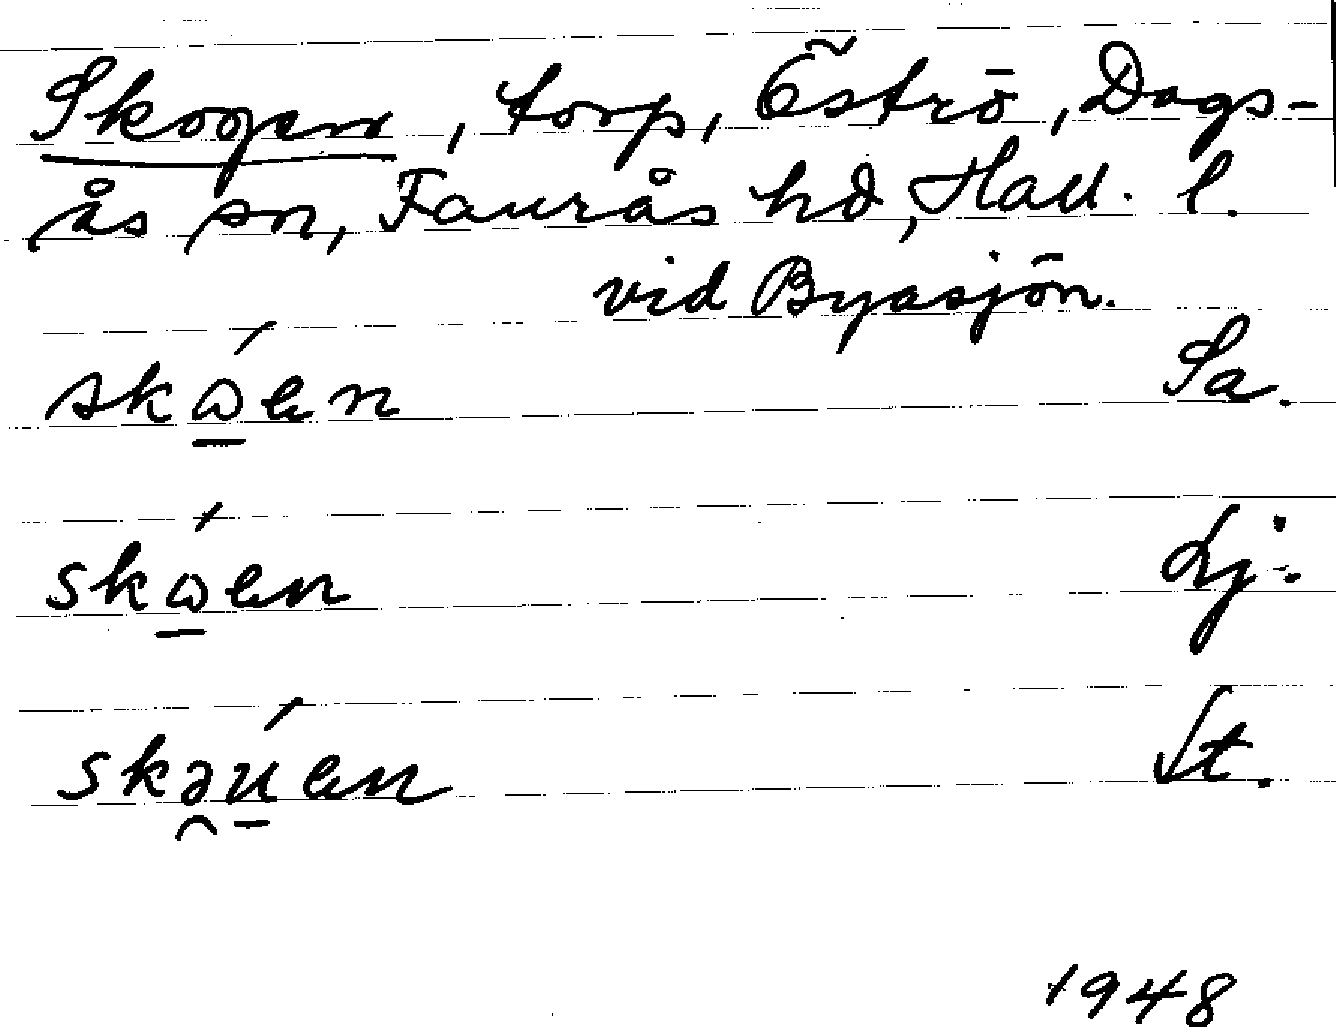 Skogen, torp, Öströ, Dags-
ås sn, Faurås hd, Hall. l.
vid Byasjön.
skɷ̲́en Sa.
skɷ̲́en Lj.
skə̯ú̲en St.
1948